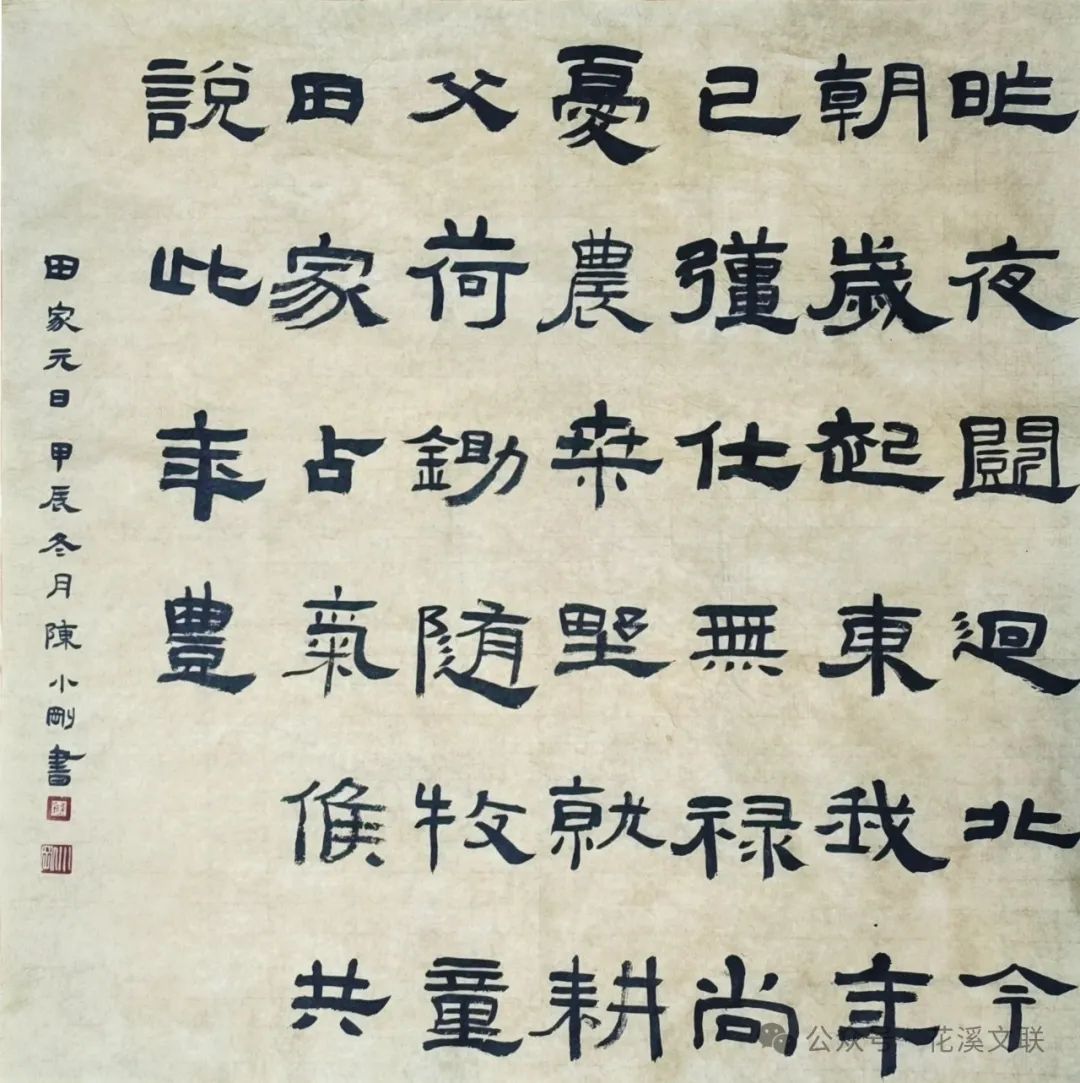 昨夜闘迴北今
朝歲起東我年
已彊仕無禄尚
憂農桒野就耕
父荷鋤随牧童
田家占氣候共
說此年豊
田家元日 甲辰冬月陳小剛書
公众号·花溪文联